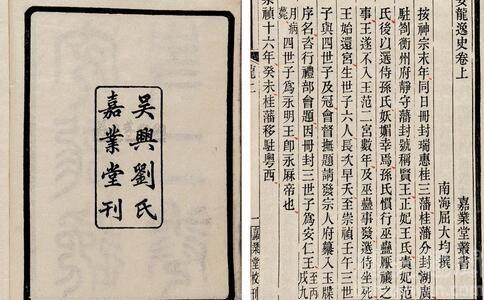 吳興劉氏
嘉業堂刊
安龍逸史卷上
嘉業堂叢書
南海屈大均撰
按神宗末年同日冊封瑞惠桂三藩桂藩分封湖廣
駐劄衡州府靜守藩封號稱賢王正妃王氏貴妃范
氏後以選侍孫氏妖媚幸焉孫氏慣行巫蠱厭禳之
事王遂不入王范二宮數年及巫蠱事發選侍坐死
王始還宮生世子六人長次早夭至崇禎壬午三世
子與四世子及冠會督撫題請發宗人府纂入玉牒
序名咨行禮部會題因冊封三世子為安仁王至丙戌九
月病薨四世子為永明王即永麻帝也
崇禎十六年癸未桂藩移駐粵西
龍上
一
嘉業堂校刊